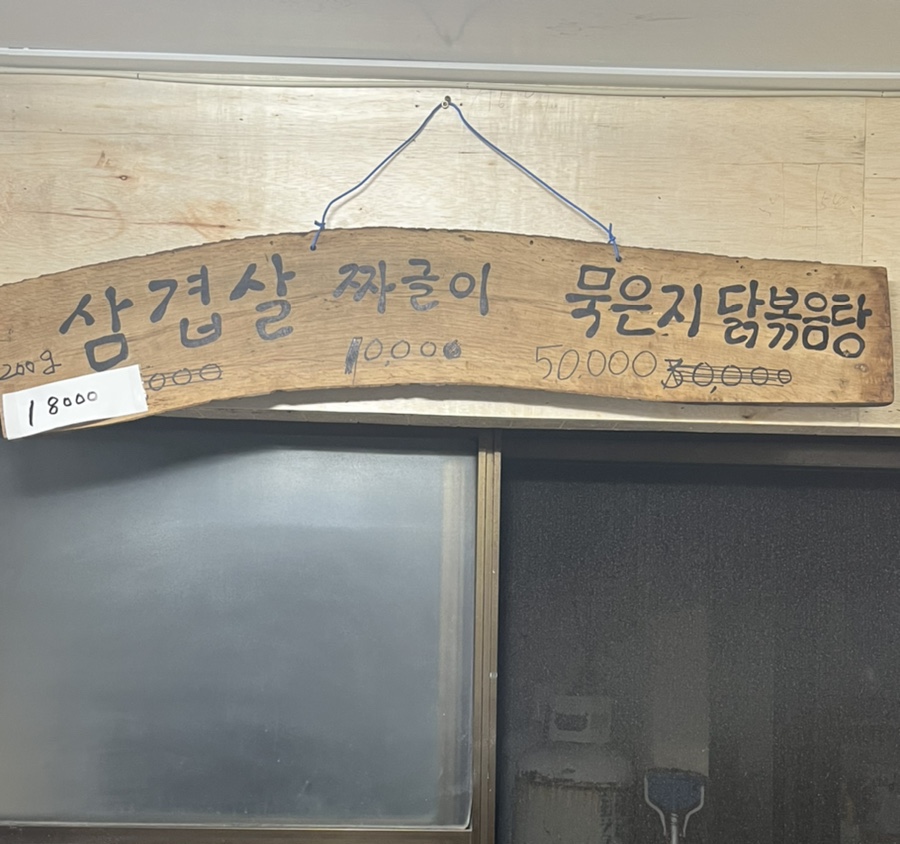 삼겹살 짜글이 묵은지 닭볶음탕
200g 10,000 50,000
18000 000